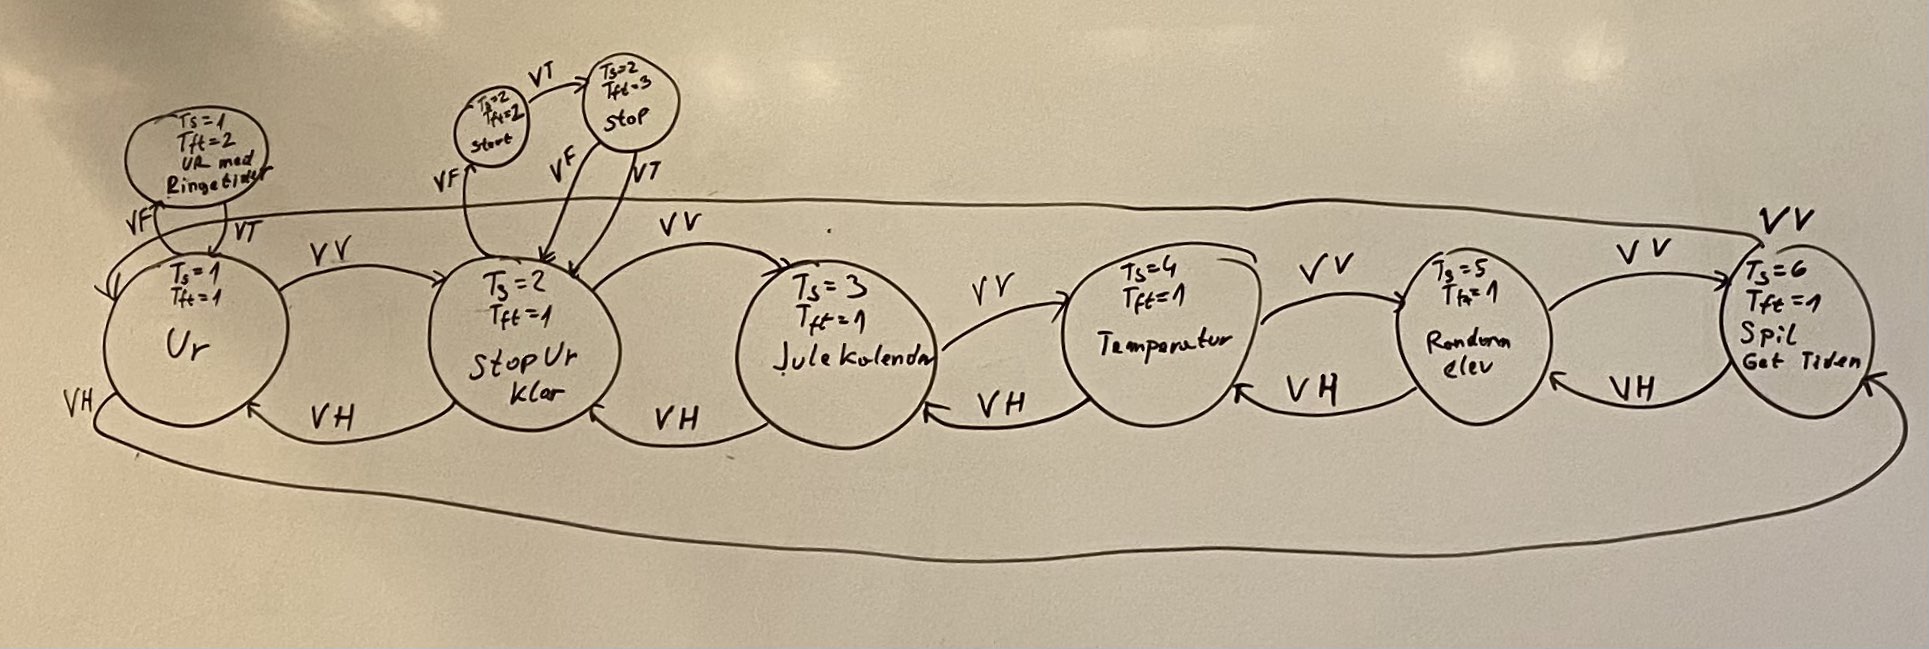 Ts=1
Tft=2
UR med
Ringetider
VF
VT
Ts=2
Tft=2
Start
VT
Ts=2
Tft=3
Stop
VF
VF
VT
Ts=1
Tft=1
Ur
VV
VH
VH
Ts=2
Tft=1
StopUr
klar
VV
VH
Ts=3
Tft=1
Julekalender
VV
VH
Ts=4
Tft=1
Temperatur
VV
VH
Ts=5
Tft=1
Random
elev
VV
VH
VV
Ts=6
Tft=1
Spil
Gæt Tiden